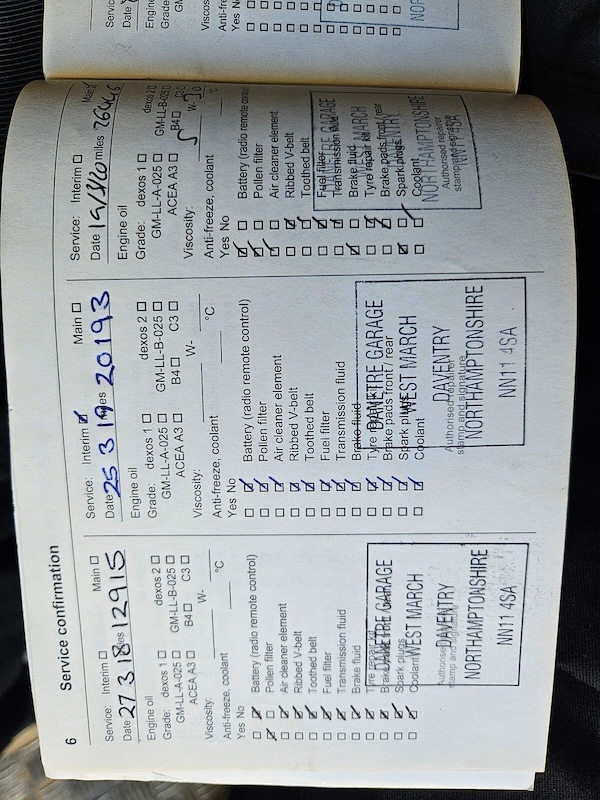 6 Service confirmation
Service: Interim ☐ Main ☐
Date 27 3 18 miles 12915
Engine oil
Grade: dexos 1 ☐ dexos 2 ☐
GM-LL-A-025 ☐ GM-LL-B-025 ☐
ACEA A3 ☐ B4 ☐ C3 ☐
Viscosity: W-
Anti-freeze, coolant °C
Yes No
Battery (radio remote control)
Pollen filter
Air cleaner element
Ribbed V-belt
Toothed belt
Fuel filter
Transmission fluid
Brake fluid
Tyre repair kit
Brake
Spark plugs
Coolant
DANETRE GARAGE
WEST MARCH
DAVENTRY
NORTHAMPTONSHIRE
NN11 4SA
Authorised
stamp and signature
Service: Interim ☑ Main ☐
Date 25 3 19 miles 20193
Engine oil
Grade: dexos 1 ☐ dexos 2 ☐
GM-LL-A-025 ☐ GM-LL-B-025 ☐
ACEA A3 ☐ B4 ☐ C3 ☐
Viscosity: W-
Anti-freeze, coolant °C
Yes No
Battery (radio remote control)
Pollen filter
Air cleaner element
Ribbed V-belt
Toothed belt
Fuel filter
Transmission fluid
Brake fluid
Tyre
Brake pads front / rear
Spark plugs
Coolant
DANETRE GARAGE
WEST MARCH
DAVENTRY
NORTHAMPTONSHIRE
NN11 4SA
Authorised repairer
stamp and signature
Service: Interim ☐ Main ☑
Date miles
Engine oil
Grade: dexos 1 ☐ dexos 2 ☐
GM-LL-A-025 ☐ GM-LL-B-025 ☐
ACEA A3 ☐ B4 ☐
Viscosity: 5 W-
Anti-freeze, coolant °C
Yes No
Battery (radio remote control)
Pollen filter
Air cleaner element
Ribbed V-belt
Toothed belt
Fuel filter
Transmission fluid
Brake fluid
Tyre repair kit
Brake pads front / rear
Spark plugs
Coolant
GARAGE
MARCH
NORTHAMPTONSHIRE
Authorised repairer
stamp and signature
Service
Date
Engine
Grade:
Anti-fr
Yes N